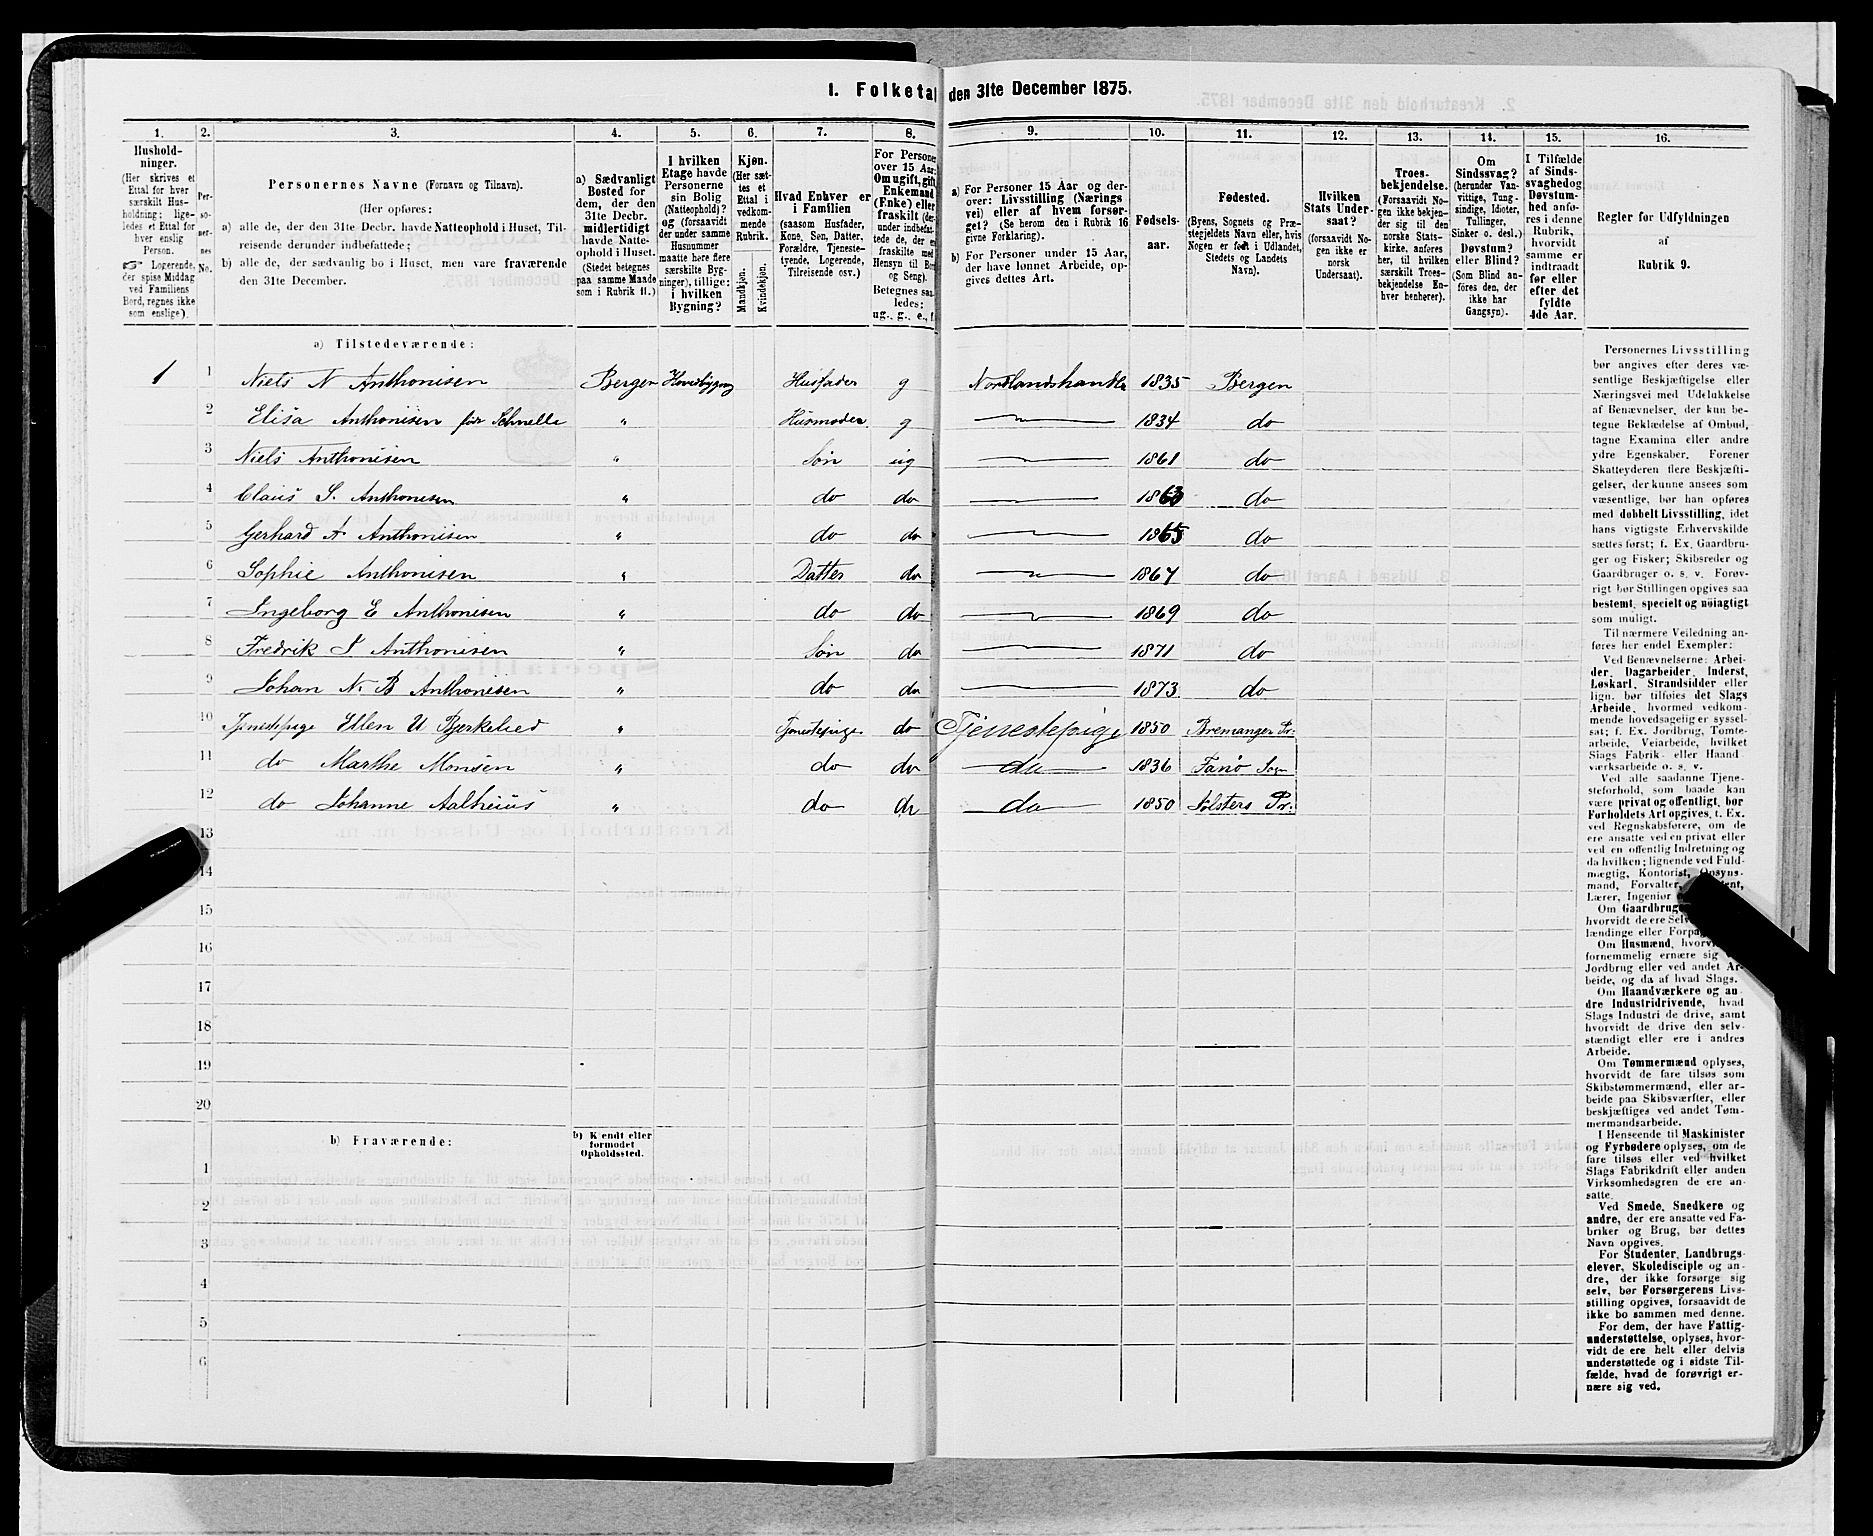 1. Folketal den 31te December 1875.
1. 2. 3. 4. 5. 6. 7. 8. 9. 10. 11. 12. 13. 14. 15. 16.
Hushold-
ninger.
(Her skrives et
Ettal for hver
særskilt Hus-
holdning; lige-
ledes et Ettal for
hver enslig
Person.
☞ Logerende,
der spise Middag
ved Familiens
Bord, regnes ikke
som enslige).
Per-
so-
ner-
nes
No.
Personernes Navne (Fornavn og Tilnavn).
(Her opføres:
a) alle de, der den 31te Decbr. havde Natteophold i Huset, Til-
reisende derunder indbefattede;
b) alle de, der sædvanlig bo i Huset, men vare fraværende
den 31te December.
a) Sædvanligt
Bosted for
dem, der den
31te Decbr.
midlertidigt
havde Natte-
ophold i Huset.
(Stedet betegnes
paa samme Maade
som i Rubrik 11.)
I hvilken
Etage havde
Personerne
sin Bolig
(Natteophold)?
og (forsaavidt
der under samme
Husnummer
maatte høre flere
særskilte Byg-
ninger), tillige:
i hvilken
Bygning?
Kjøn.
(Her sæt-
tes et
Ettal i
vedkom-
mende
Rubrik.
Mandkjøn.
Kvindekjøn.
Hvad Enhver er
i Familien
(saasom Husfader,
Kone, Søn, Datter,
Forældre, Tjeneste-
tyende, Logerende,
Tilreisende osv.)
For Personer
over 15 Aar:
Om ugift, gift,
Enkemand
(Enke) eller
fraskilt (der-
under indbefat-
tede de, der er
fraskilte med
Hensyn til Bord
og Seng).
Betegnes saa-
ledes:
ug., g., e., f.
a) For Personer 15 Aar og der-
over: Livsstilling (Nærings
vei) eller af hvem forsør-
get? (Se herom den i Rubrik 16
givne Forklaring).
b) For Personer under 15 Aar,
der have lønnet Arbeide, op-
gives dettes Art.
Fødsels-
aar.
Fødested.
(Byens, Sognets og Præ-
stegjeldets Navn eller, hvis
Nogen er født i Udlandet,
Stedets og Landets
Navn).
Hvilken
Stats Under-
saat?
(forsaavidt No-
gen ikke er
norsk
Undersaat).
Troes-
bekjendelse.
(Forsaavidt No-
gen ikke bekjen-
der sig til den
norske Stats-
kirke, anføres
her, til hvilken
særskilt Troes-
bekjendelse En-
hver henhører).
Om
Sindssvag?
(herunder Van-
vittige, Tung-
sindige, Idioter,
Tullinger,
Sinker o. desl.)
Døvstum?
eller Blind?
(Som Blind an-
føres den, der
ikke har
Gangsyn).
I Tilfælde
af Sinds-
svaghed og
Døvstum-
hed anfø-
res i denne
Rubrik,
hvorvidt
samme er
indtraadt
før eller
efter det
fyldte
4de Aar.
Regler for Udfyldningen
af
Rubrik 9.
a) Tilstedeværende:
1 1 Niels N Anthonisen Bergen Hovedbygng Husfader g Nordlandshandler 1835 Bergen
2 Elisa Anthonisen født Schnelle " Husmoder g 1834 do
3 Niels Anthonisen " Søn ug 1861 do
4 Claus S. Anthonisen " do do 1863 do
5 Gerhard A Anthonisen " do do 1865 do
6 Sophie Anthonisen " Datter do 1867 do
7 Ingeborg E Anthonisen " do do 1869 do
8 Fredrik I Anthonisen " Søn do 1871 do
9 Johan N. B Anthonisen " do do 1873 do
10 Tjenestepige Ellen U Bjerkelied " Tjenestepige do Tjenestepige 1850 Bremanger Pr.
11 do Marthe Monsen " do do do 1836 Fanø Sogn
12 do Johanne " do do do 1850 Pr.
13
14
15
16
17
18
19
20
b) Fraværende:
b) Kjendt eller
formodet
Opholdssted.
1
2
3
4
5
6
Personernes Livsstilling
bør angives efter deres væ-
sentlige Beskjæftigelse eller
Næringsvei med Udelukkelse
af Benævnelser, der kun be-
tegne Beklædelse af Ombud,
tagne Examina eller andre
ydre Egenskaber. Forener
Skatteyderen flere Beskjæfti-
gelser, der kunne ansees som
væsentlige, bør han opføres
med dobbelt Livsstilling, idet
hans vigtigste Erhvervskilde
sættes først; f. Ex. Gaardbru-
ger og Fisker; Skibsreder og
Gaardbruger o. s. v. Forøv-
rigt bør Stillingen opgives saa
bestemt, specielt og nöiagtigt
som muligt.
Til nærmere Veiledning an-
føres her endel Exempler:
Ved Benævnelserne: Arbei-
der, Dagarbeider, Inderst,
Løskarl, Strandsidder eller
lign. bør tilføies det Slags
Arbeide, hvormed vedkom-
mende hovedsagelig er syssel-
sat; f. Ex. Jordbrug, Tomte-
arbeide, Veiarbeide, hvilket
Slags Fabrik- eller Haand
værksarbeide o. s. v.
Ved alle saadanne Tjene-
steforhold, som baade kan
være privat og offentligt, bør
Forholdets Art opgives, t. Ex.
ved Regnskabsførere, om de
ere ansatte ved en privat eller
ved en offentlig Indretning og
da hvilken; lignende ved Fuld-
mægtig, Kontorist, Opsyns-
mand, Forvalter,
Lærer, Ingeniør
Om Gaardbrug
hvorvidt de ere Selv
lændinge eller Forpag
Om Husmænd, hvorvidt
fornemmelig ernære sig
Jordbrug eller ved andet Ar-
beide, og da af hvad Slags.
Om Haandværkere og an-
dre Industridrivende, hvad
Slags Industri de drive, samt
hvorvidt de drive den selv-
stændigt eller ere i andres
Arbeide.
Om Tømmermænd oplyses,
hvorvidt de fare tilsøs som
Skibstømmermænd, eller ar-
beide paa Skibsværfter, eller
beskjæftiges ved andet Tøm-
mermandsarbeide.
I Henseende til Maskinister
og Fyrbødere oplyses, om de
fare tilsøs eller ved hvilket
Slags Fabrikdrift eller anden
Virksomhedsgren de ere an-
satte.
Ved Smede, Snedkere og
andre, der ere ansatte ved Fa-
briker og Brug, bør dettes
Navn opgives.
For Studenter, Landbrugs-
elever, Skoledisciple og an-
dre, der ikke forsørge sig
selv, bør Forsørgerens Livs-
stilling opgives, forsaavidt de
ikke bo sammen med denne.
For dem, der have Fattig-
understøttelse, oplyses, hvor-
vidt de ere helt eller delvis
understøttede og i sidste Til-
fælde, hvad de forøvrigt er-
nære sig ved.